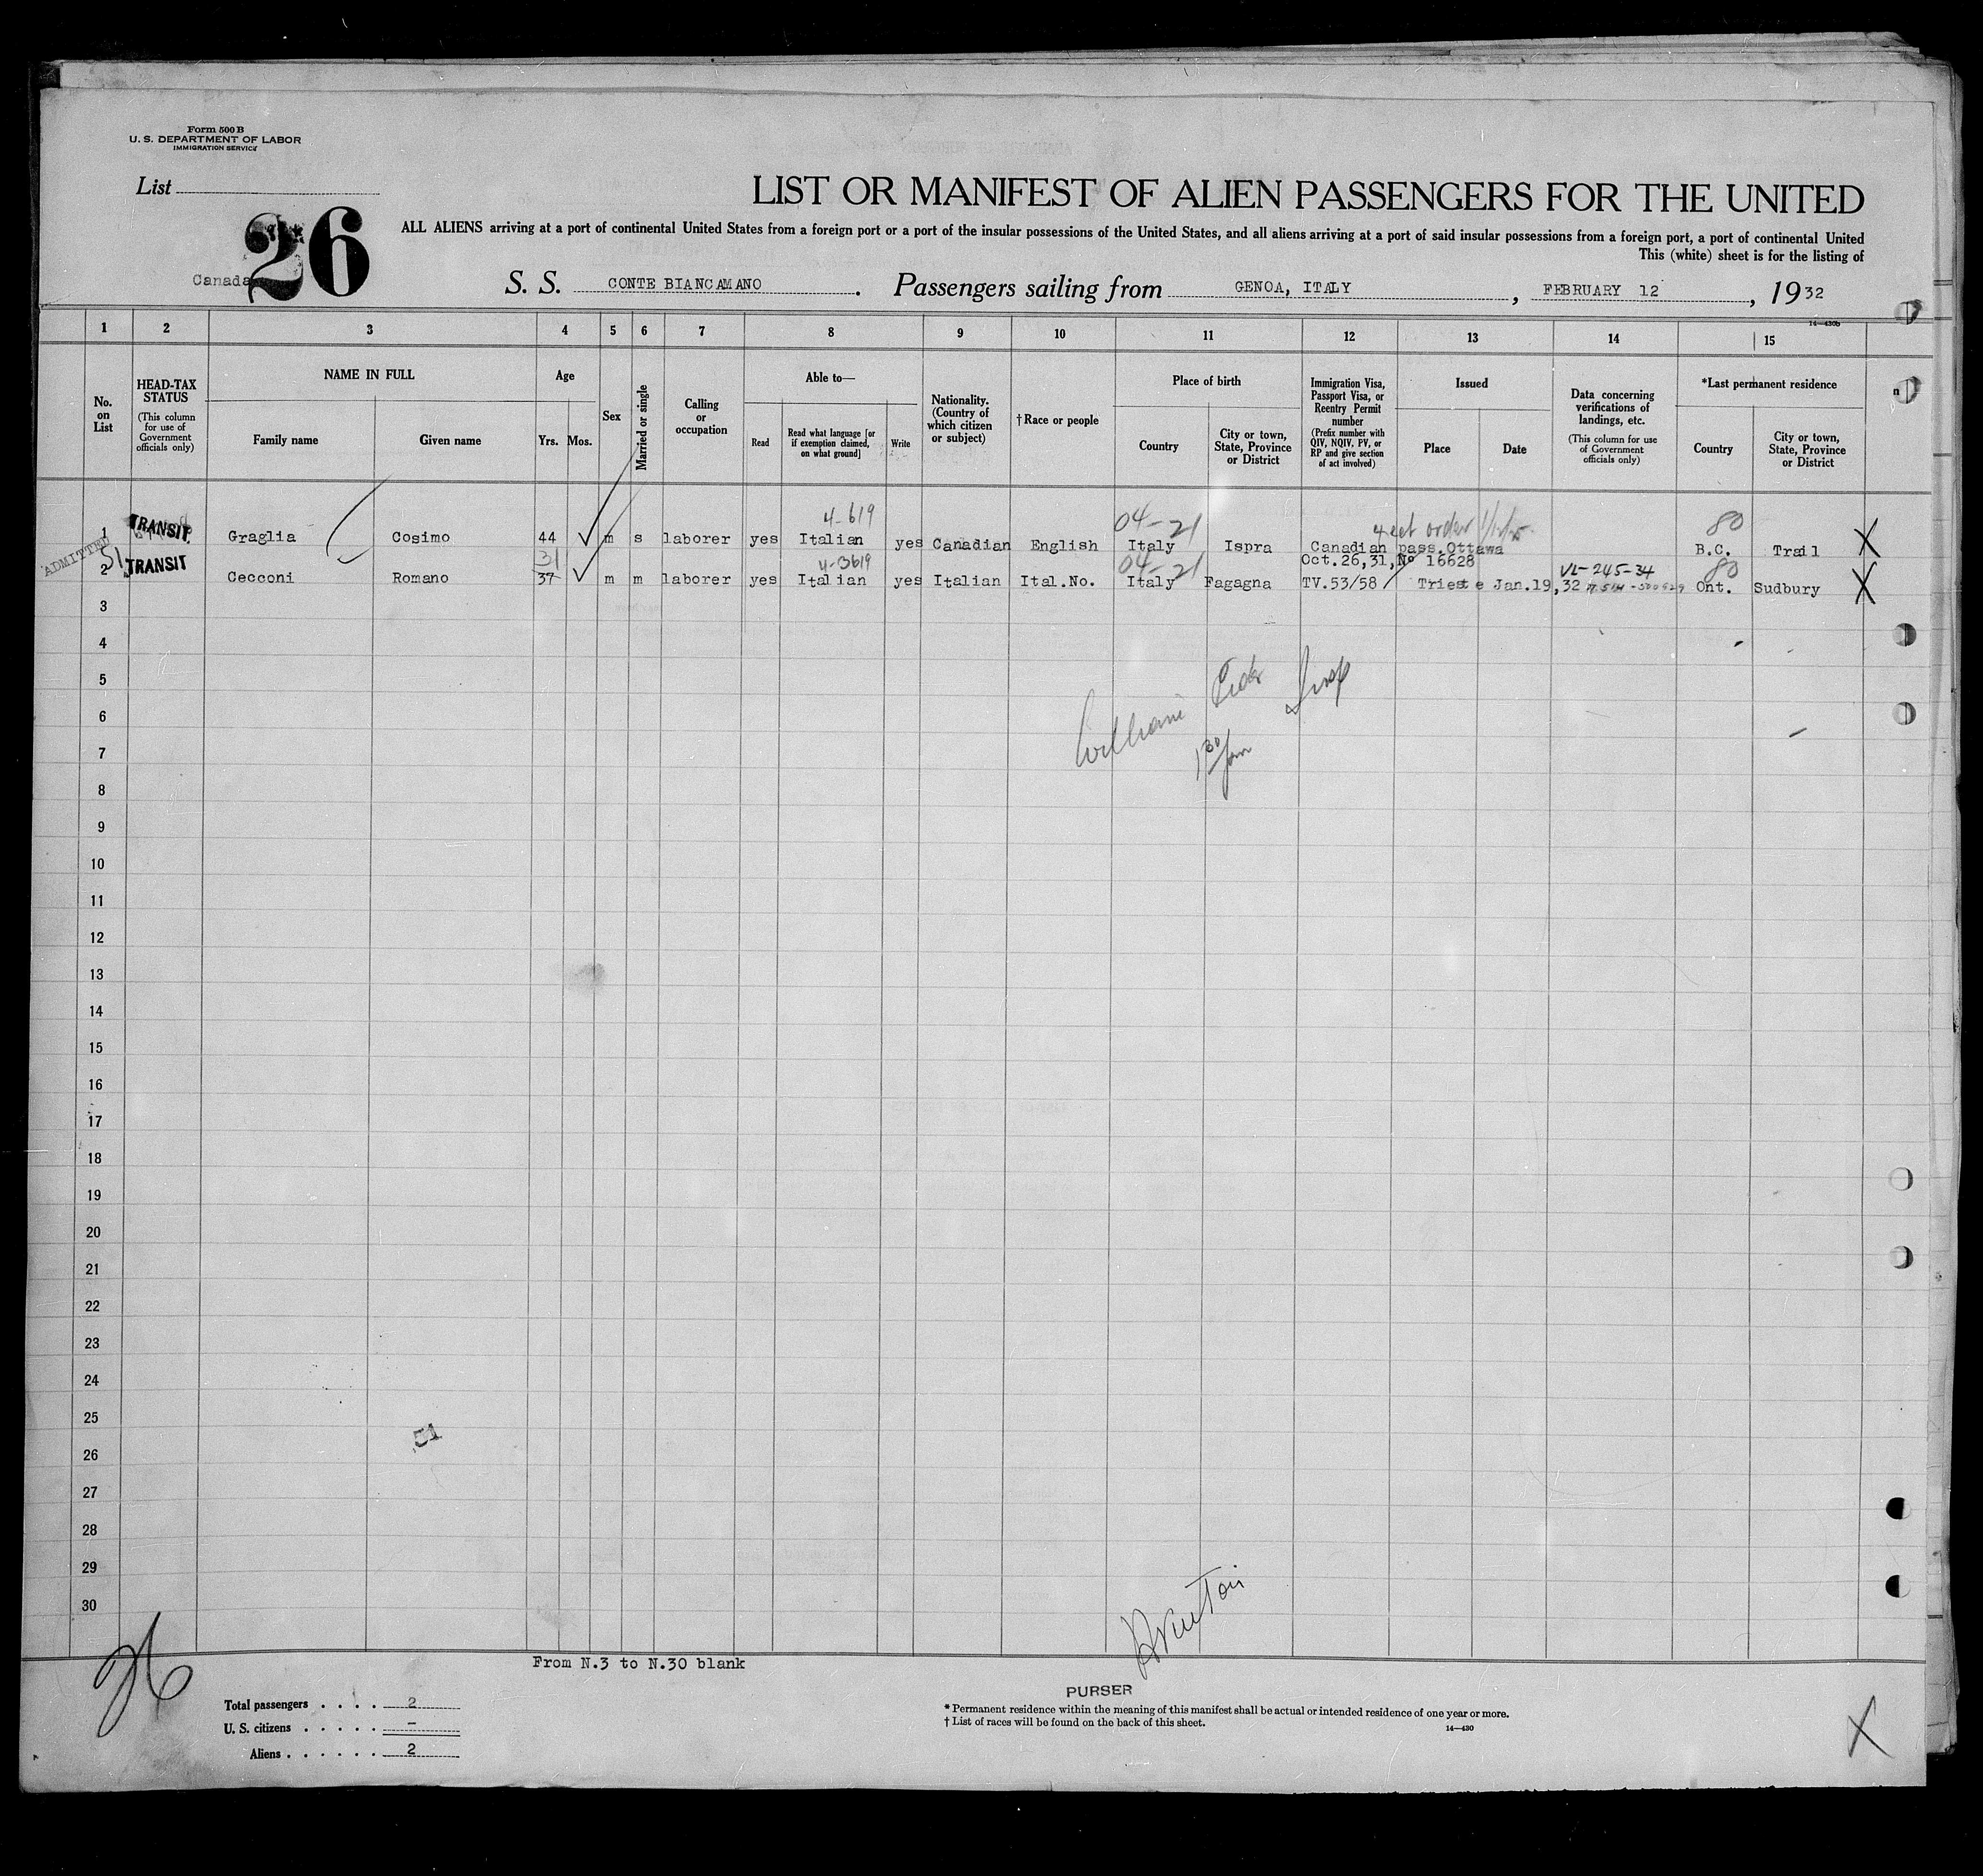 Form 500 B
U. S. DEPARTMENT OF LABOR
IMMIGRATION SERVICE
List
26
Canada
LIST OR MANIFEST OF ALIEN PASSENGERS FOR THE UNITED
ALL ALIENS arriving at a port of continental United States from a foreign port or a port of the insular possessions of the United States, and all aliens arriving at a port of said insular possessions from a foreign port, a port of continental United
This (white) sheet is for the listing of
S. S. CONTE BIANCAMANO. Passengers sailing from GENOA, ITALY, FEBRUARY 12, 1932
14—430b
1 2 3 4 5 6 7 8 9 10 11 12 13 14 15
No. on List
HEAD-TAX STATUS
(This column for use of Government officials only)
NAME IN FULL
Family name
Given name
Age
Yrs. Mos.
Sex
Married or single
Calling or occupation
Able to—
Read
Read what language [or if exemption claimed, on what ground]
Write
Nationality. (Country of which citizen or subject)
†Race or people
Place of birth
Country
City or town, State, Province or District
Immigration Visa, Passport Visa, or Reentry Permit number
(Prefix number with QIV, NQIV, PV, or RP and give section of act involved)
Issued
Place
Date
Data concerning verifications of landings, etc.
(This column for use of Government officials only)
*Last permanent residence
Country
City or town, State, Province or District
4-619 04-21 80
1 TRANSIT Graglia Cosimo 44 m s laborer yes Italian yes Canadian English Italy Ispra Canadian pass.Ottawa B.C. Trail X
Oct.26,31,Nº 16628
ADMITTED
51
31 4-3619 04-21 VL-245-34 80
2 TRANSIT Cecconi Romano 37 m m laborer yes Italian yes Italian Ital.No. Italy Fagagna TV.53/58 Trieste Jan.19,32 Ont. Sudbury X
3
4
5
6
7
8
9
10
11
12
13
14
15
16
17
18
19
20
21
22
23
24
25
51
26
27
28
29
30
26
From N.3 to N.30 blank
Total passengers . . . . 2
U. S. citizens . . . . . –
Aliens . . . . . . 2
PURSER
* Permanent residence within the meaning of this manifest shall be actual or intended residence of one year or more.
† List of races will be found on the back of this sheet.
14—430
X